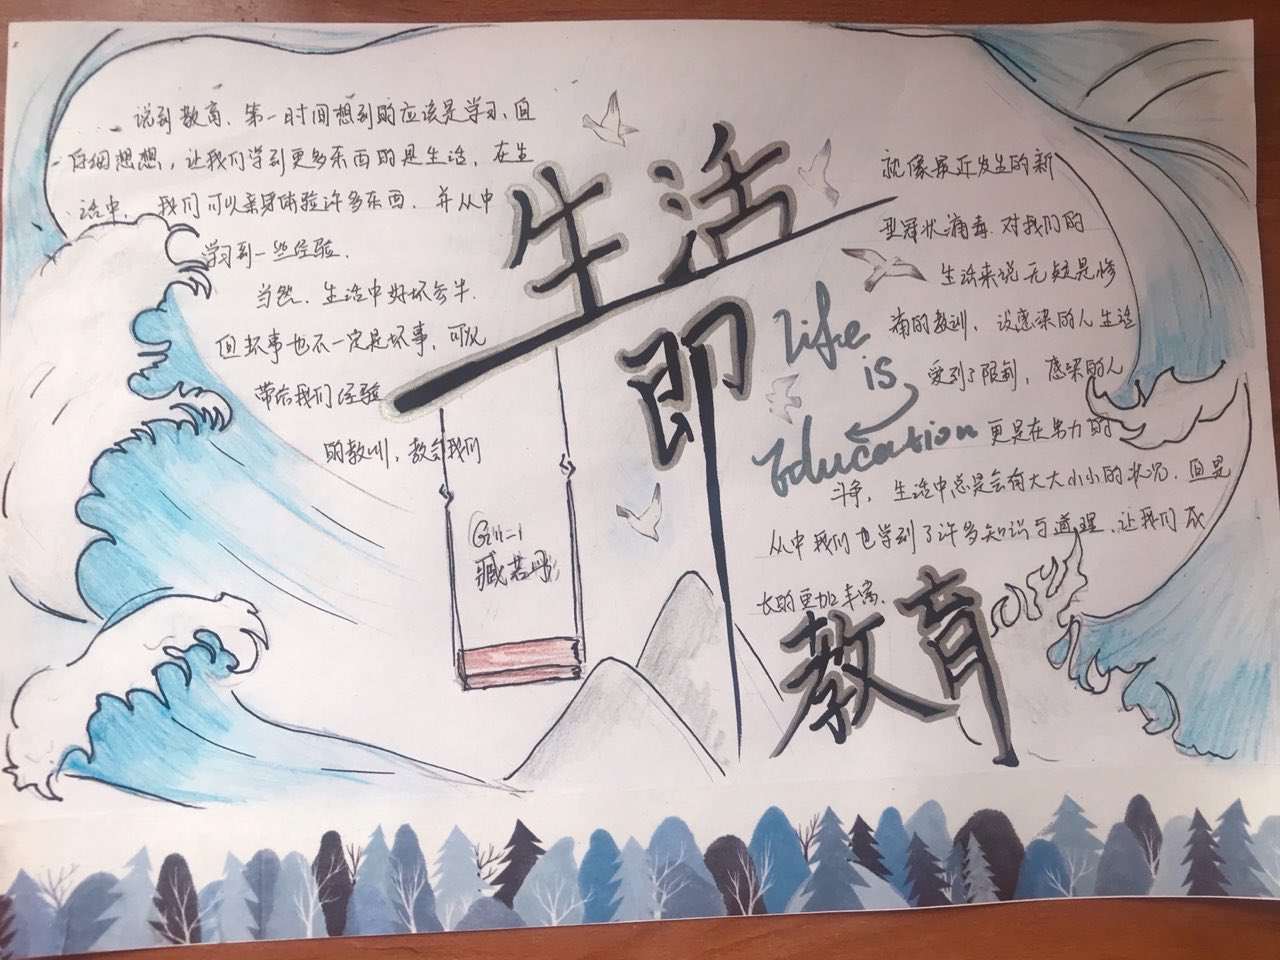 说到教育、第一时间想到的应该是学习、但
仔细想想，让我们学到更多东西的是生活，在生
活中，我们可以亲身体验许多东西，并从中
学习到一些经验．
当然、生活中好坏参半．
但坏事也不一定是坏事，可以
带给我们经验
的教训，教会我们
生活
即
教育
Life
is
Education
就像最近发生的新
型冠状病毒．对我们的
生活来说无疑是惨
痛的教训，没感染的人生活
受到了限制，感染的人
更是在努力的
斗争，生活中总是会有大大小小的状况．但是
从中我们也学到了许多知识与道理、让我们成
长的更加丰富．
臧若丹